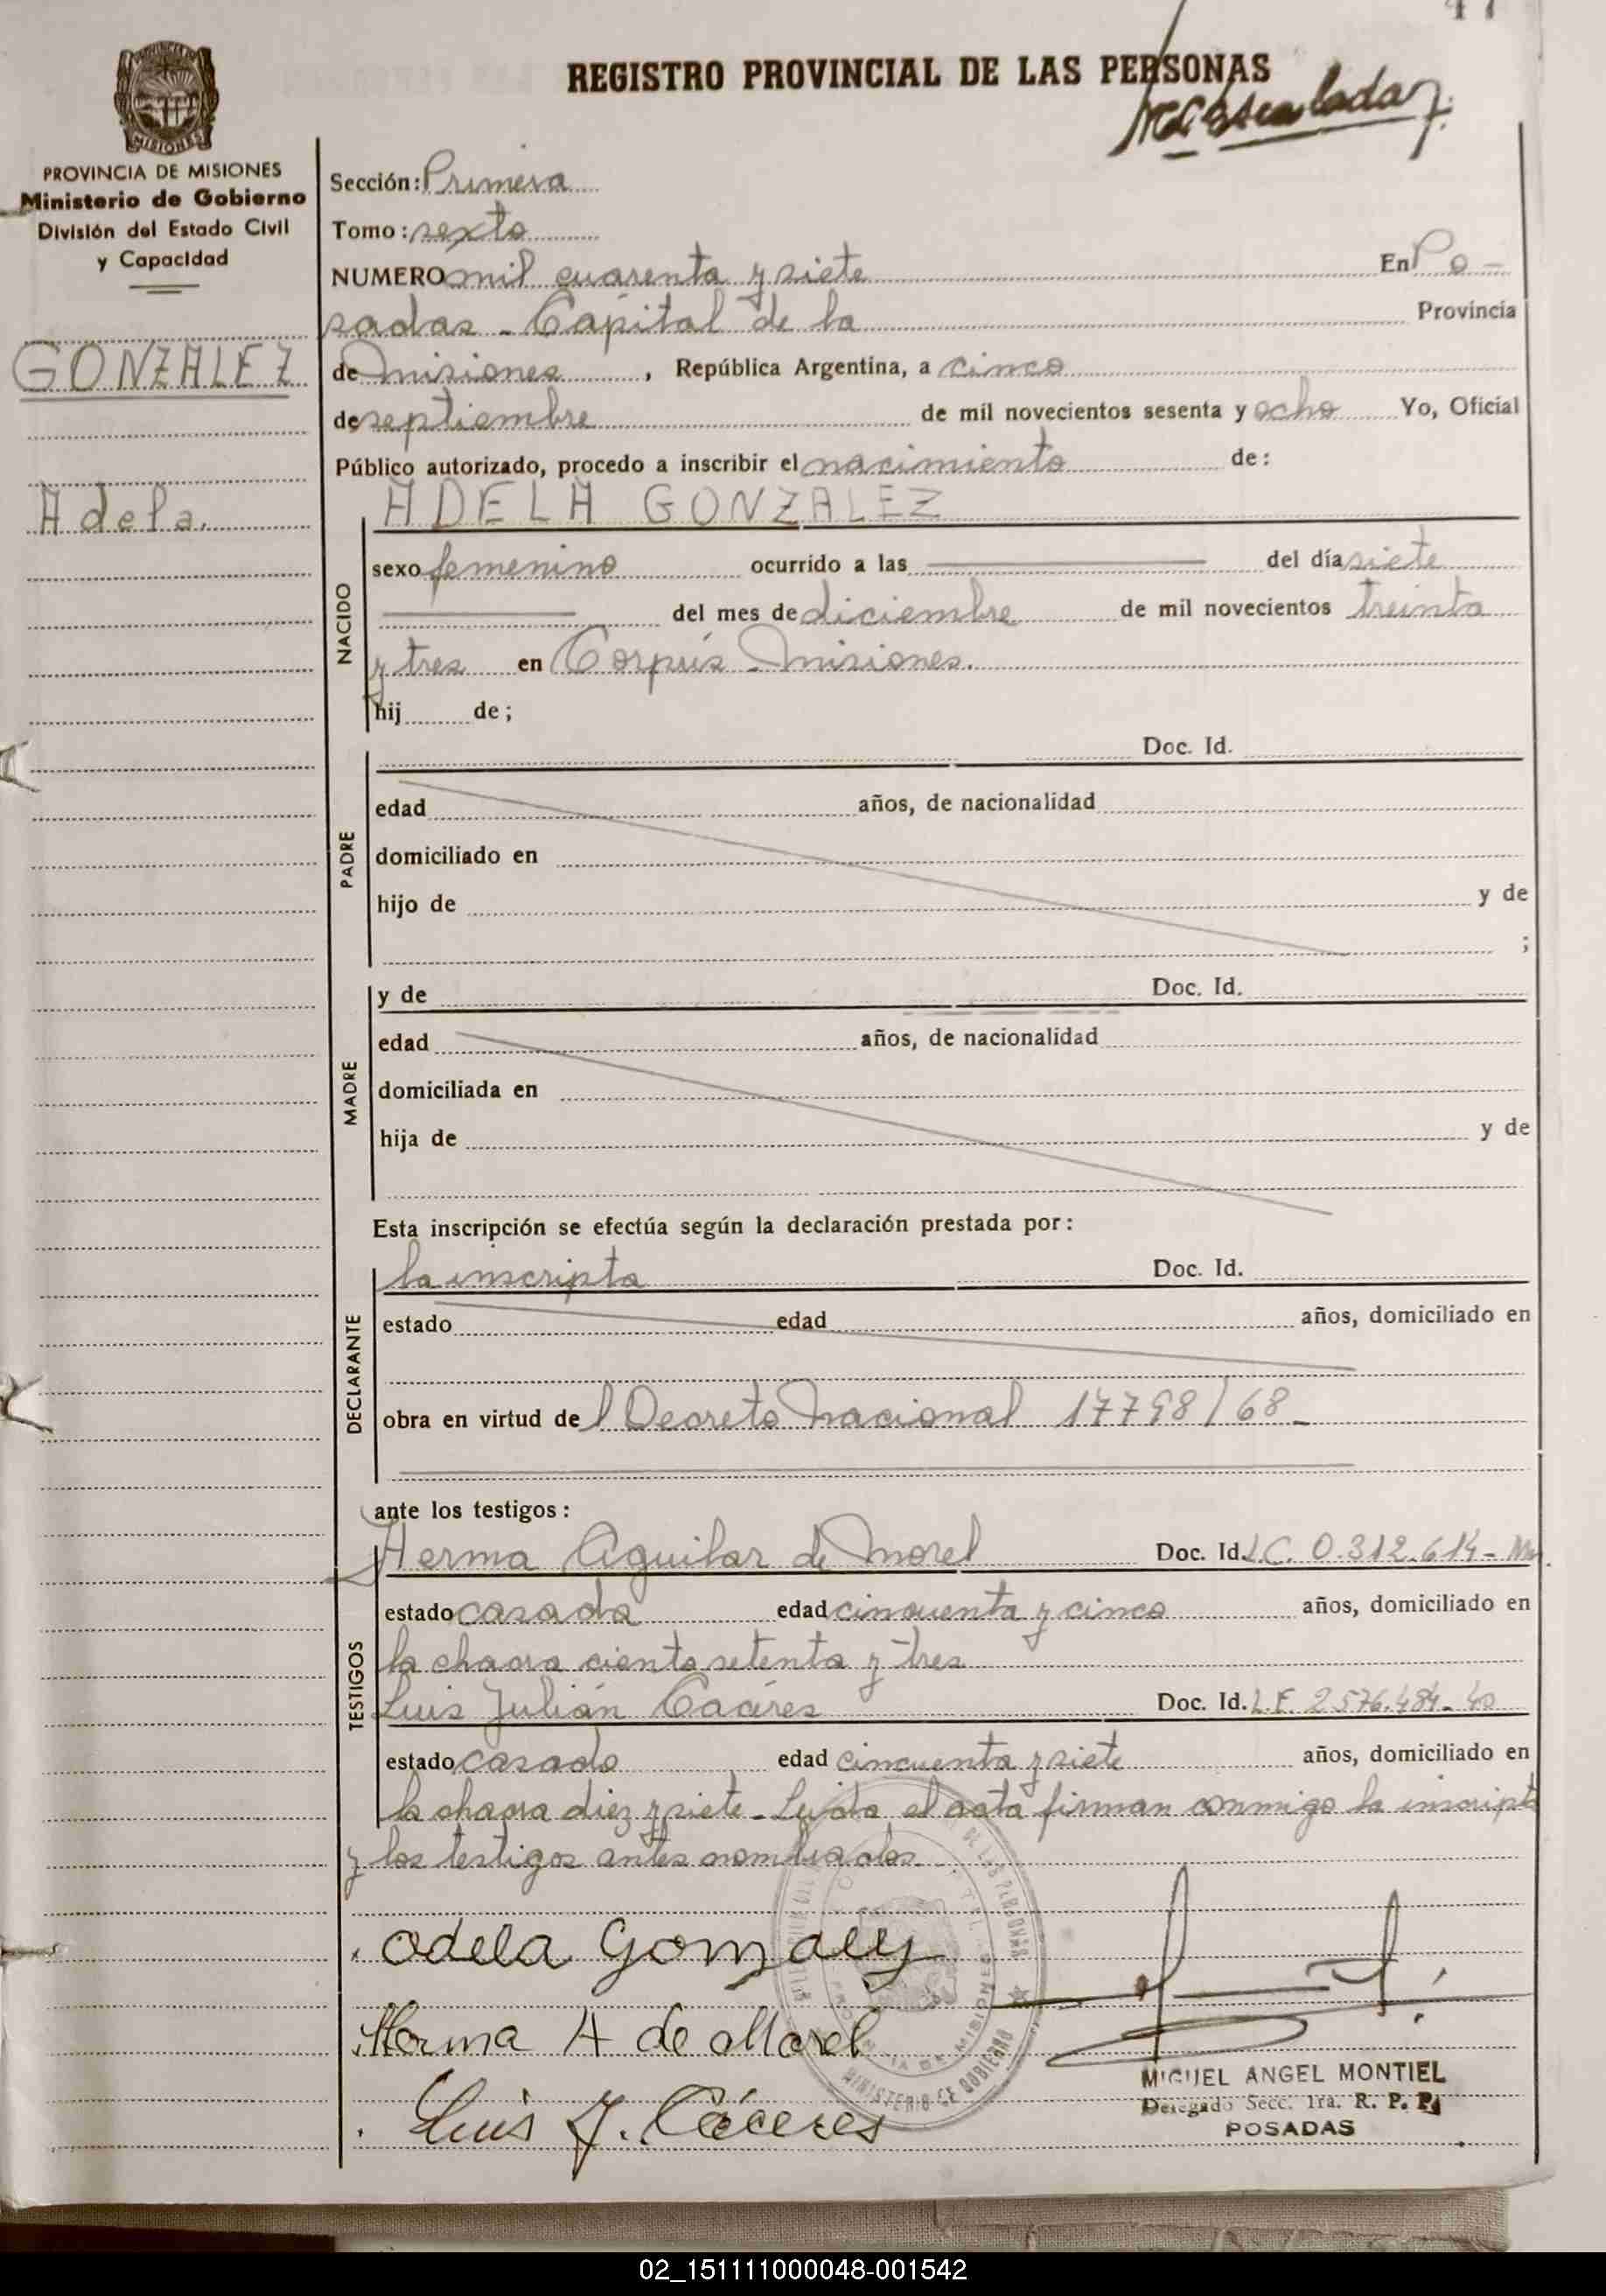 47
REGISTRO PROVINCIAL DE LAS PERSONAS
PROVINCIA DE MISIONES
Ministerio de Gobierno
División del Estado Civil
y Capacidad
GONZALEZ
Adela.
Sección: Primera
Tomo: sexto
NUMERO mil cuarenta y siete En Po-
sadas - Capital de la Provincia
de Misiones, República Argentina, a cinco
de septiembre de mil novecientos sesenta y ocho Yo, Oficial
Público autorizado, procedo a inscribir el nacimiento de:
ADELA GONZALEZ
NACIDO
sexo femenino ocurrido a las del día siete
del mes de diciembre de mil novecientos treinta
y tres en Corpús - Misiones.
hij de;
PADRE
Doc. Id.
edad años, de nacionalidad
domiciliado en
hijo de y de
;
MADRE
y de Doc. Id.
edad años, de nacionalidad
domiciliada en
hija de y de
Esta inscripción se efectúa según la declaración prestada por:
DECLARANTE
la inscripta Doc. Id.
estado edad años, domiciliado en
obra en virtud del Decreto Nacional 17798/68-
ante los testigos:
TESTIGOS
Herma Aguilar de Morel Doc. Id. L.C. 0.312.614-
estado casada edad cincuenta y cinco años, domiciliado en
la chacra ciento setenta y tres
Luis Julián Cacéres Doc. Id. L.E. 2576.484-
estado casado edad cincuenta y siete años, domiciliado en
la chacra diez y siete - Leída el acta firman conmigo la inscripta
y los testigos antes nombrados.
Adela Gonzalez
Herma A de Morel
Luis J. Cáceres
MINISTERIO DE GOBIERNO
MIGUEL ANGEL MONTIEL
Delegado Secc. 1ra. R. P. P.
POSADAS
02_151111000048-001542